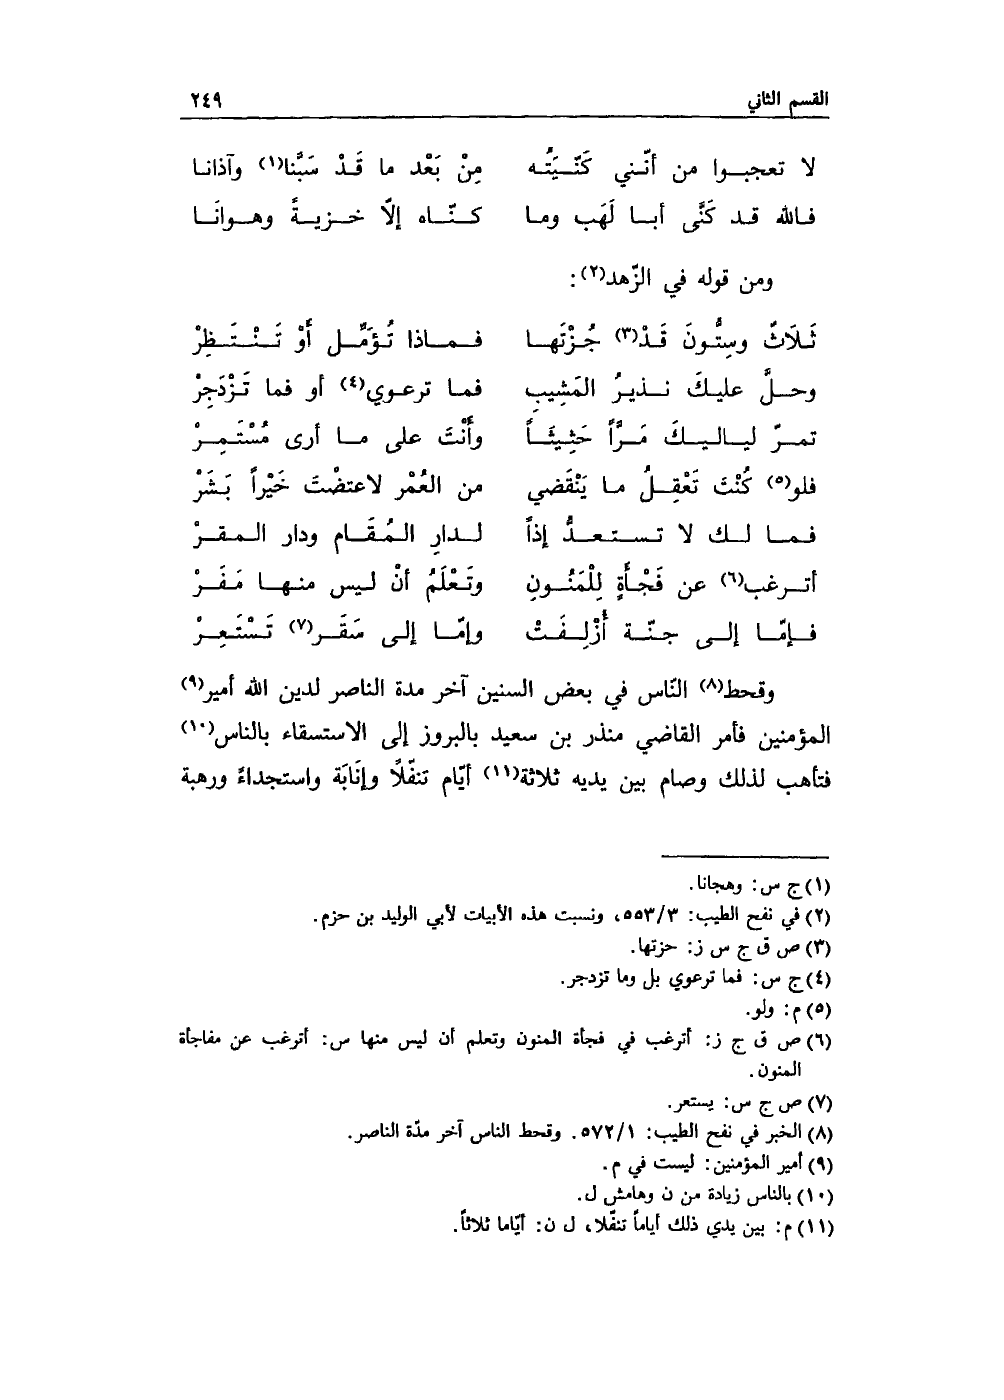 القسم الثاني ٢٤٩
لا تعجبوا من أنّني كَنَّيَتُه مِنْ بَعْد ما قَدْ سَبَّنا(١) وآذانا
فالله قد كَنَّى أبا لَهَب وما كنّاه إلّا خزيةً وهوانَا
ومن قوله في الزّهد(٢):
ثَلَاثٌ وسِتُّونَ قَدْ(٣) جُزْتَها فماذا تُؤَمِّل أَوْ تَنْتَظِرْ
وحلَّ عليكَ نذيرُ المَشِيبِ فما ترعوي(٤) أو فما تَزْدَجِرْ
تمرّ لياليكَ مَرًّاً حَثِيثَاً وأَنْتَ على ما أرى مُسْتَمِرْ
فلو(٥) كُنْتَ تَعْقِلُ ما يَنْقَضي من العُمْر لاعتضْتَ خَيْراً بَشَرْ
فما لك لا تستعدُّ إذاً لدارِ المُقَام ودار المقرْ
أترغب(٦) عن فَجْأَةٍ لِلْمَنُونِ وتَعْلَمُ أنْ ليس منها مَفَرْ
فإمّا إلى جنّة أُزْلِفَتْ وإمّا إلى سَقَر(٧) تَسْتَعِرْ
وقحط(٨) النّاس في بعض السنين آخر مدة الناصر لدين الله أمير(٩)
المؤمنين فأمر القاضي منذر بن سعيد بالبروز إلى الاستسقاء بالناس(١٠)
فتأهب لذلك وصام بين يديه ثلاثة(١١) أيّام تنفّلاً وإنَابَة واستجداءً ورهبة
(١) ج س: وهجانا.
(٢) في نفح الطيب: ٥٥٣/٣، ونسبت هذه الأبيات لأبي الوليد بن حزم.
(٣) ص ق ج س ز: حزتها.
(٤) ج س: فما ترعوي بل وما تزدجر.
(٥) م: ولو.
(٦) ص ق ج ز: أترغب في فجأة المنون وتعلم أن ليس منها س: أترغب عن مفاجأة
المنون.
(٧) ص ج س: يستعر.
(٨) الخبر في نفح الطيب: ٥٧٢/١. وقحط الناس آخر مدّة الناصر.
(٩) أمير المؤمنين: ليست في م.
(١٠) بالناس زيادة من ن وهامش ل.
(١١) م: بين يدي ذلك أياماً تنفّلا، ل ن: أيّاما ثلاثاً.